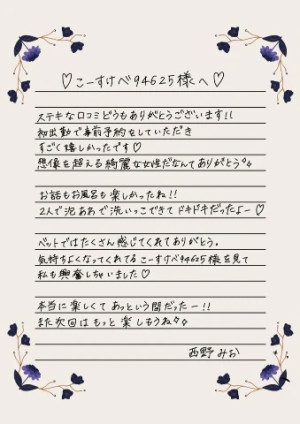 ♡こーすけべ94625様へ♡
ステキな口コミどうもありがとうございます!!
初出勤で事前予約をしていただき
すごく嬉しかったです♡
想像を超える綺麗な女性だなんてありがとう✧
お話もお風呂も楽しかったね!!
2人で泡あわで洗いっこできてドキドキだったよー♡
ベットではたくさん感じてくれてありがとう。
気持ちよくなってくれてるこーすけべ94625様を見て
私も興奮しちゃいました♡
本当に楽しくてあっという間だったー!!
また次回はもっと楽しもうね✧✧
西野みか